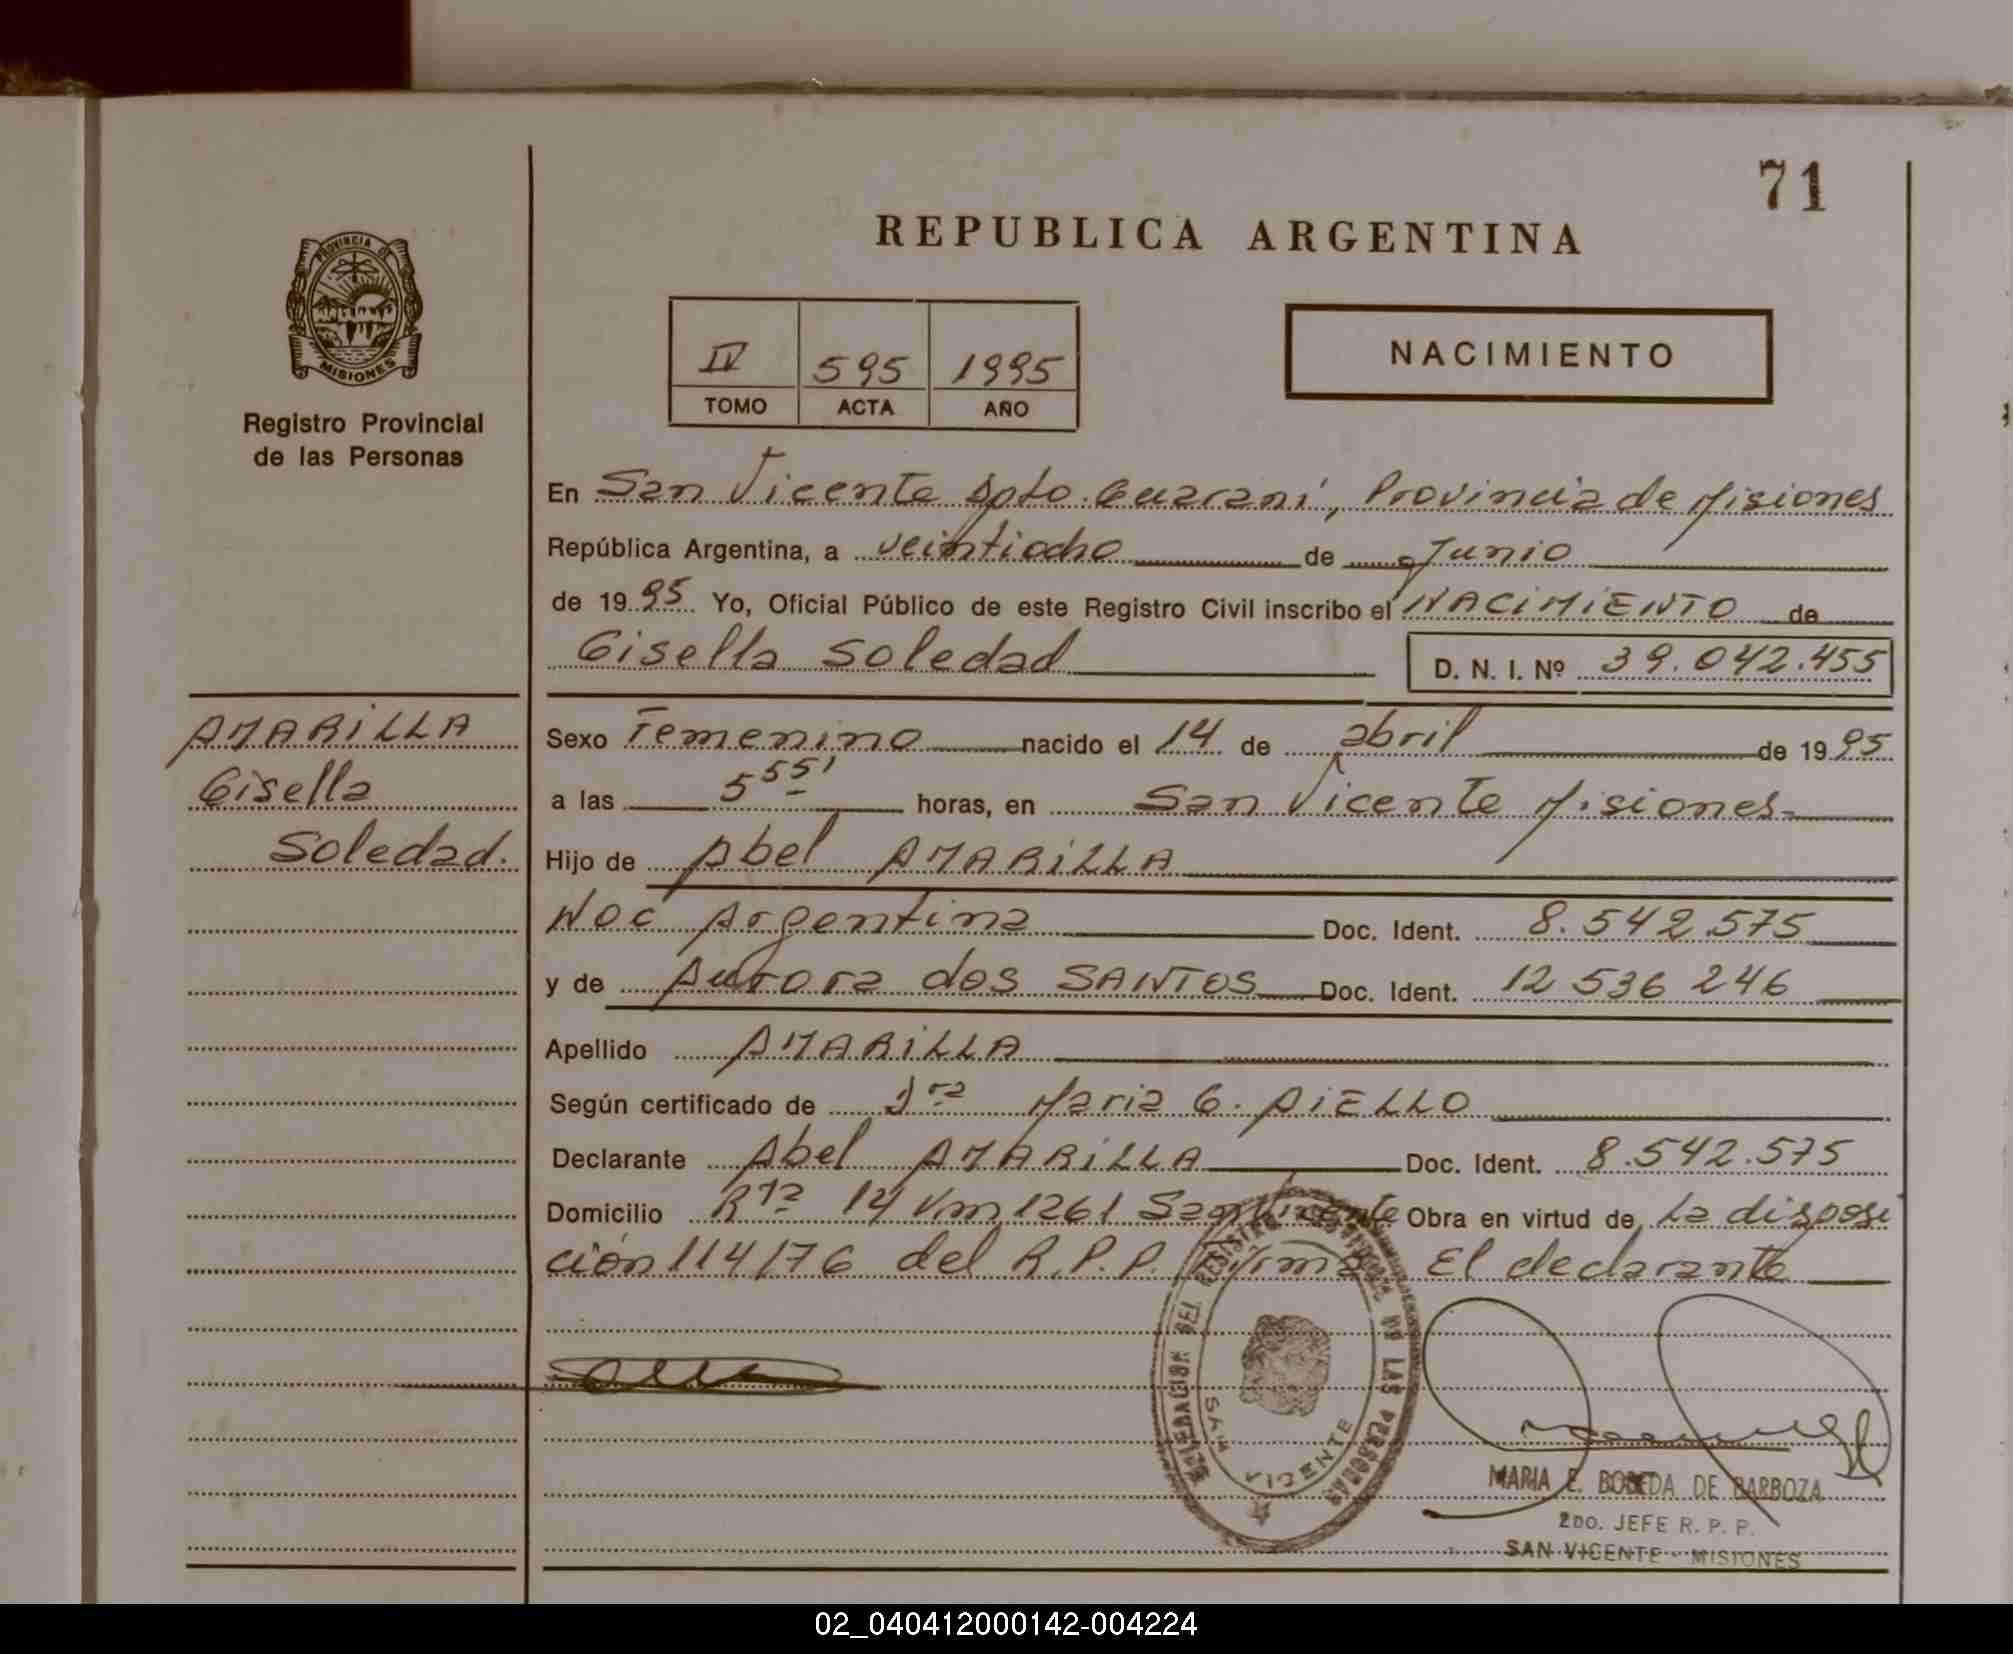 71
REPUBLICA ARGENTINA
PROVINCIA DE
MISIONES
Registro Provincial
de las Personas
IV 595 1995
TOMO ACTA AÑO
NACIMIENTO
En San Vicente Dpto. Guaraní, Provincia de Misiones
República Argentina, a veintiocho de Junio
de 1995 Yo, Oficial Público de este Registro Civil inscribo el NACIMIENTO de
Gisella Soledad D. N. I. Nº 39.042.455
AMARILLA
Gisella
Soledad.
Sexo Femenino nacido el 14 de abril de 1995
a las 5 55' horas, en San Vicente Misiones
Hijo de Abel AMARILLA
Nac Argentina Doc. Ident. 8.542.575
y de Aurora dos SANTOS Doc. Ident. 12 536 246
Apellido AMARILLA
Según certificado de Dra Maria G. AIELLO
Declarante Abel AMARILLA Doc. Ident. 8.542.575
Domicilio Rta 14 Km 1261 San Vicente Obra en virtud de La disposi
ción 114/76 del R.P.P. Firma El declarante
DELEGACION DEL REGISTRO PROVINCIAL DE LAS PERSONAS
SAN VICENTE
MARIA E. BOBEDA DE BARBOZA
2DO. JEFE R. P. P.
SAN VICENTE - MISIONES
02_040412000142-004224